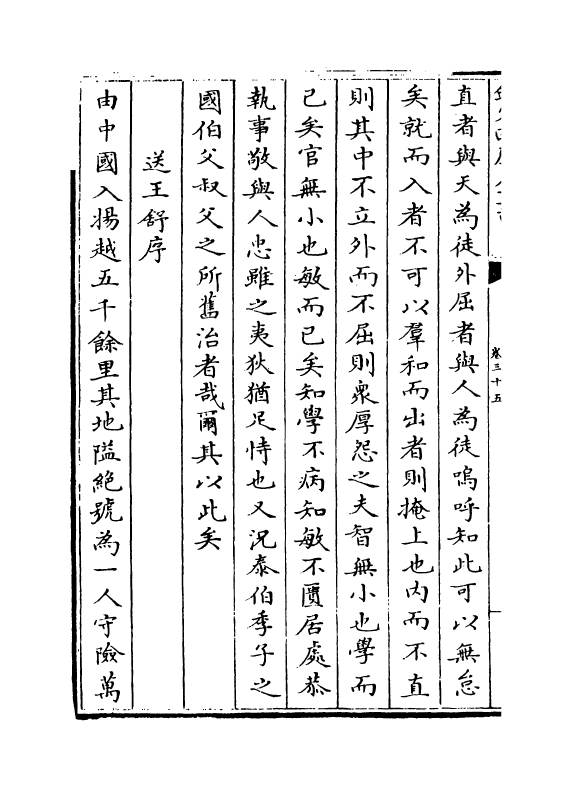 卷三十五
直者與天為徒外屈者與人為徒嗚呼知此可以無怠
矣就而入者不可以羣和而出者則掩上也内而不直
則其中不立外而不屈則衆厚怨之夫智無小也學而
已矣官無小也敏而已矣知學不病知敏不匱居處恭
執事敬與人忠雖之夷狄猶足恃也又況泰伯季子之
國伯父叔父之所舊治者哉爾其以此矣
送王舒序
由中國入揚越五千餘里其地隘絶號為一人守險萬